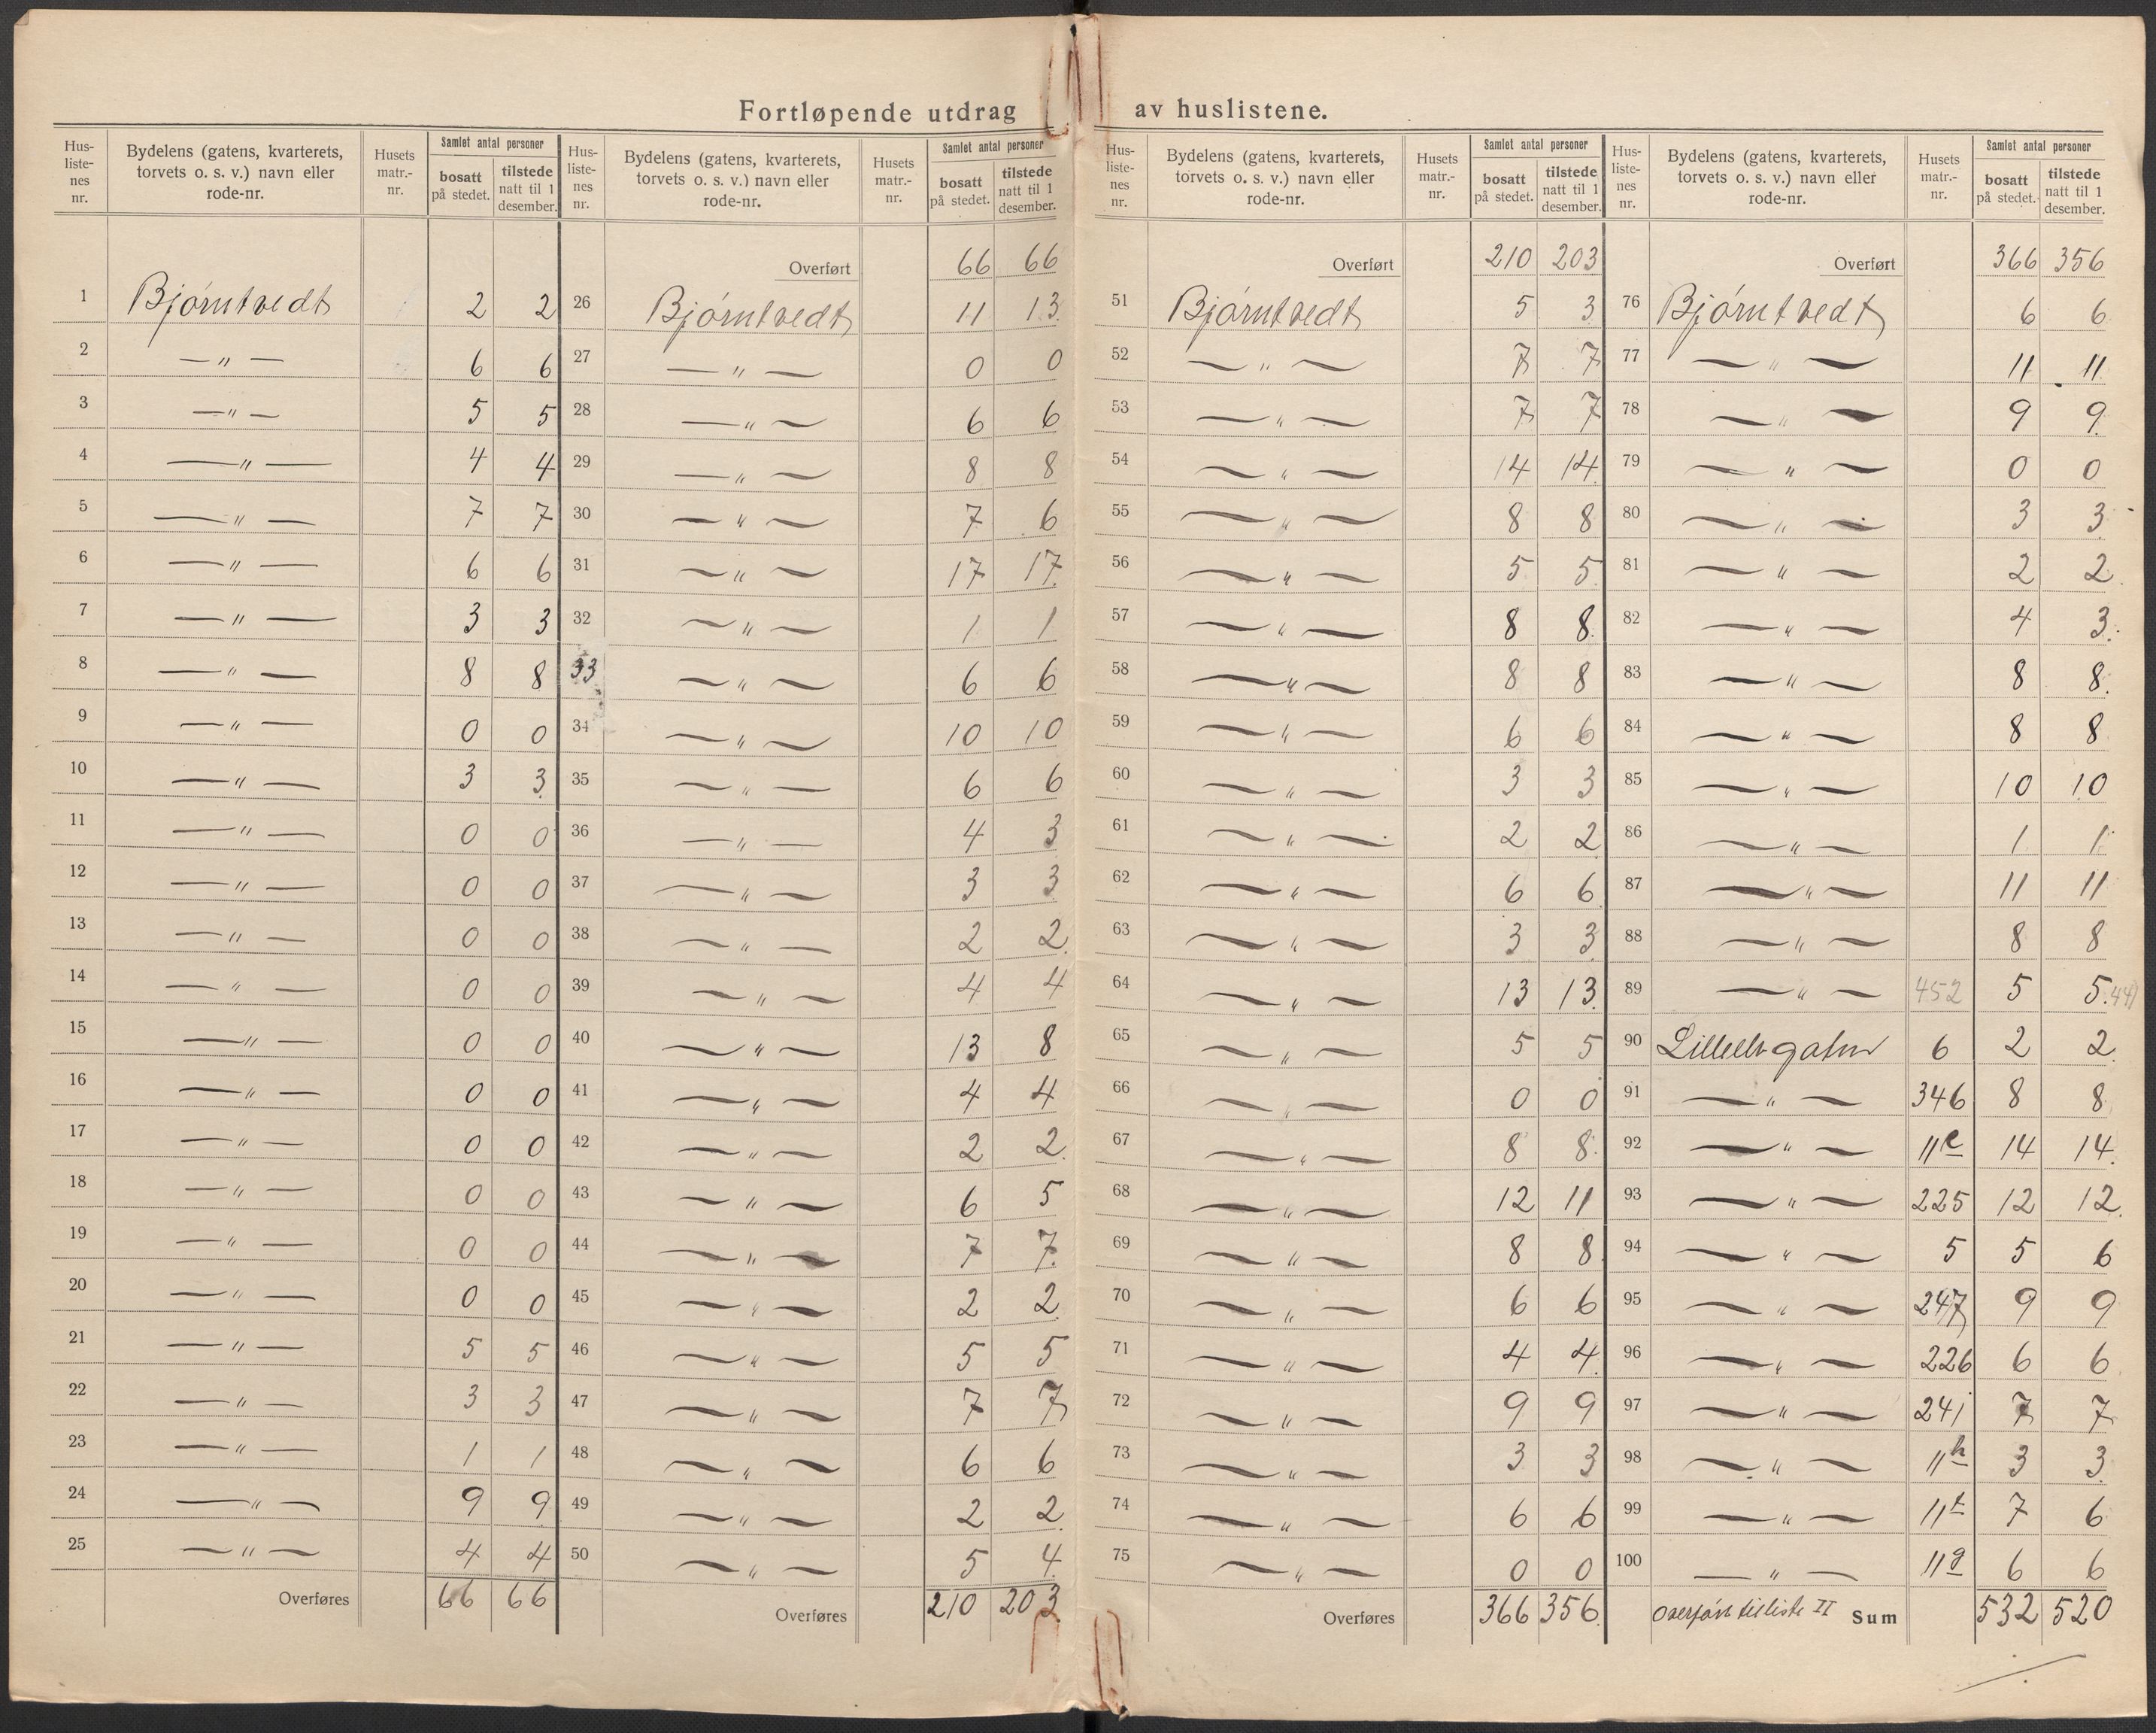 Fortløpende utdrag av huslistene.
Hus-liste-nes nr. | Bydelens (gatens, kvarterets, torvets o. s. v.) navn eller rode-nr. | Husets matr.-nr. | Samlet antal personer | bosatt på stedet. | tilstede natt til 1 desember.
1 Bjørntvedt 2 2
2 — " — 6 6
3 — " — 5 5
4 — " — 4 4
5 — " — 7 7
6 — " — 6 6
7 — " — 3 3
8 — " — 8 8
9 — " — 0 0
10 — " — 3 3
11 — " — 0 0
12 — " — 0 0
13 — " — 0 0
14 — " — 0 0
15 — " — 0 0
16 — " — 0 0
17 — " — 0 0
18 — " — 0 0
19 — " — 0 0
20 — " — 0 0
21 — " — 5 5
22 — " — 3 3
23 — " — 1 1
24 — " — 9 9
25 — " — 4 4
Overføres 66 66
Hus-liste-nes nr. | Bydelens (gatens, kvarterets, torvets o. s. v.) navn eller rode-nr. | Husets matr.-nr. | Samlet antal personer | bosatt på stedet. | tilstede natt til 1 desember.
Overført 66 66
26 Bjørntvedt 11 13
27 — " — 0 0
28 — " — 6 6
29 — " — 8 8
30 — " — 7 6
31 — " — 17 17
32 — " — 1 1
33 — " — 6 6
34 — " — 10 10
35 — " — 6 6
36 — " — 4 3
37 — " — 3 3
38 — " — 2 2
39 — " — 4 4
40 — " — 13 8
41 — " — 4 4
42 — " — 2 2
43 — " — 6 5
44 — " — 7 7
45 — " — 2 2
46 — " — 5 5
47 — " — 7 7
48 — " — 6 6
49 — " — 2 2
50 — " — 5 4
Overføres 210 203
Hus-liste-nes nr. | Bydelens (gatens, kvarterets, torvets o. s. v.) navn eller rode-nr. | Husets matr.-nr. | Samlet antal personer | bosatt på stedet. | tilstede natt til 1 desember.
Overført 210 203
51 Bjørntvedt 5 3
52 — " — 7 7
53 — " — 7 7
54 — " — 14 14
55 — " — 8 8
56 — " — 5 5
57 — " — 8 8
58 — " — 8 8
59 — " — 6 6
60 — " — 3 3
61 — " — 2 2
62 — " — 6 6
63 — " — 3 3
64 — " — 13 13
65 — " — 5 5
66 — " — 0 0
67 — " — 8 8
68 — " — 12 11
69 — " — 8 8
70 — " — 6 6
71 — " — 4 4
72 — " — 9 9
73 — " — 3 3
74 — " — 6 6
75 — " — 0 0
Overføres 366 356
Hus-liste-nes nr. | Bydelens (gatens, kvarterets, torvets o. s. v.) navn eller rode-nr. | Husets matr.-nr. | Samlet antal personer | bosatt på stedet. | tilstede natt til 1 desember.
Overført 366 356
76 Bjørntvedt 6 6
77 — " — 11 11
78 — " — 9 9
79 — " — 0 0
80 — " — 3 3
81 — " — 2 2
82 — " — 4 3
83 — " — 8 8
84 — " — 8 8
85 — " — 10 10
86 — " — 1 1
87 — " — 11 11
88 — " — 8 8
89 — " — 452 5 5. 441
90 6 2 2
91 — " — 346 8 8
92 — " — 11e 14 14
93 — " — 225 12 12
94 — " — 5 5 6
95 — " — 247 9 9
96 — " — 226 6 6
97 — " — 241 7 7
98 — " — 11h 3 3
99 — " — 11f 7 6
100 — " — 11g 6 6
overført til liste II Sum 532 520